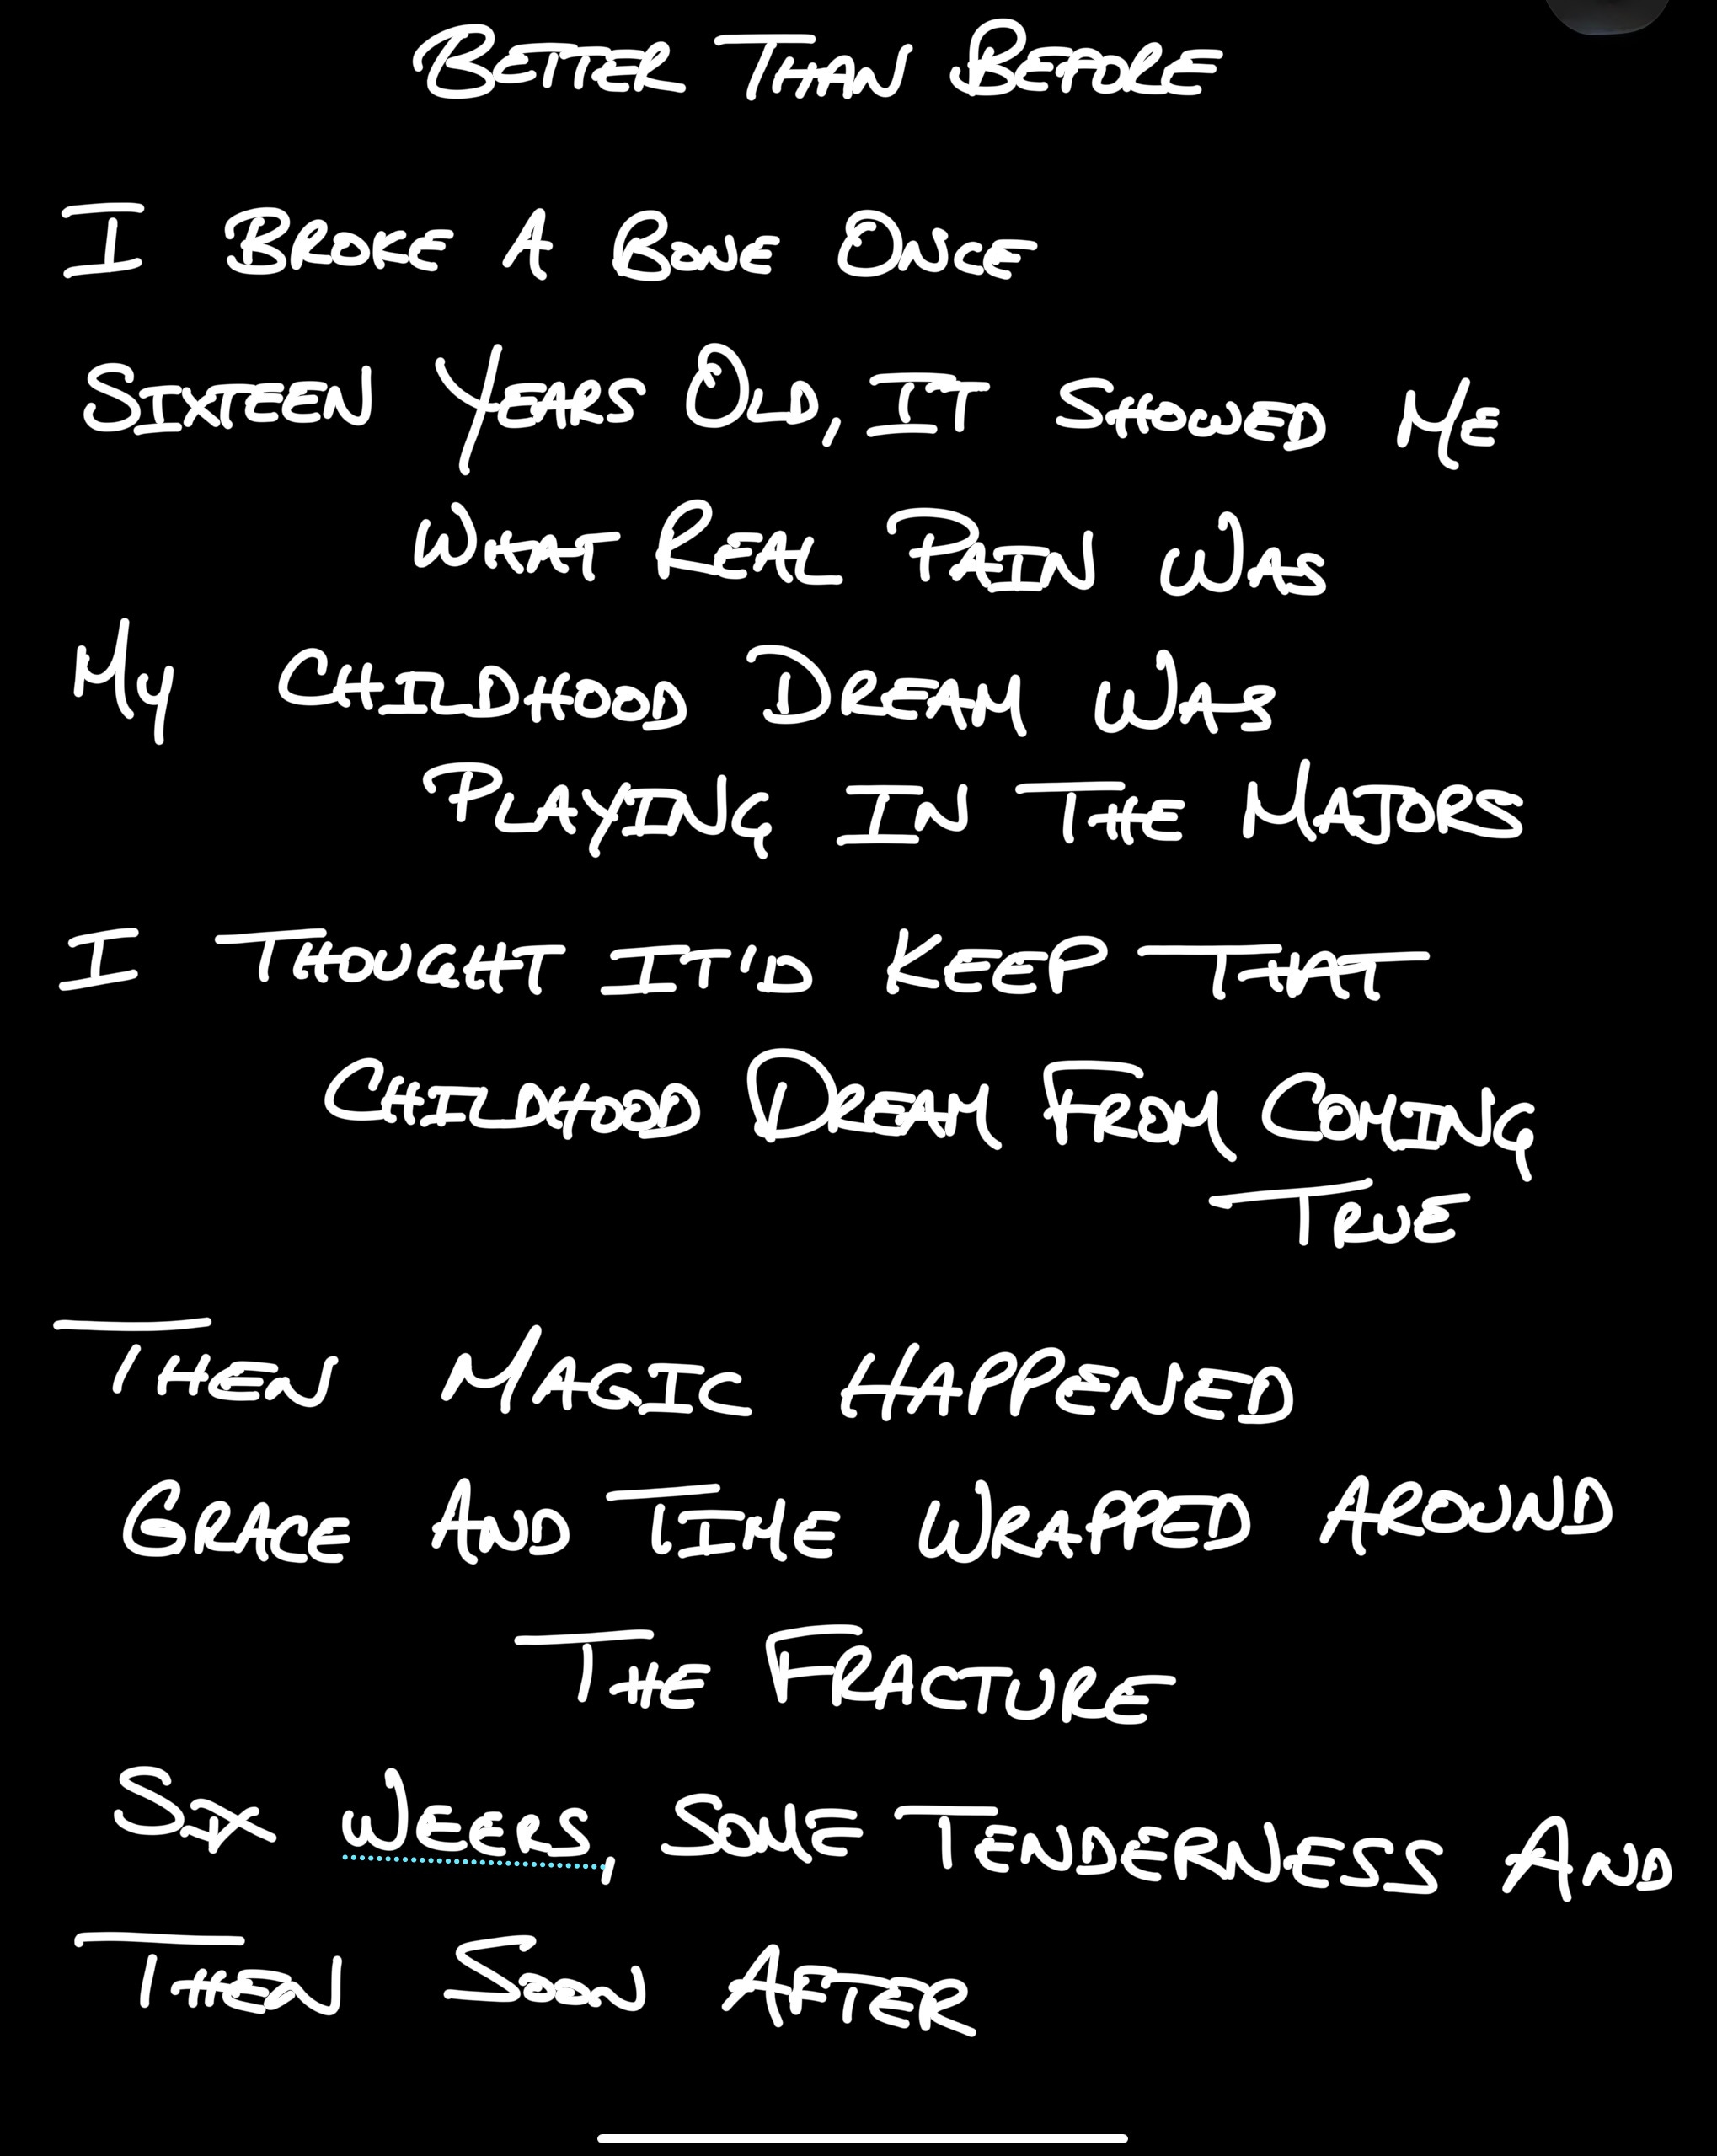 BETTER THAN BEFORE
I BROKE A BONE ONCE
SIXTEEN YEARS OLD, IT SHOWED ME
WHAT REAL PAIN WAS
MY CHILDHOOD DREAM WAS
PLAYING IN THE MAJORS
I THOUGHT IT'D KEEP THAT
CHILDHOOD DREAM FROM COMING
TRUE
THEN MAGIC HAPPENED
GRACE AND TIME WRAPPED AROUND
THE FRACTURE
SIX WEEKS, SOME TENDERNESS AND
THEN SOON AFTER